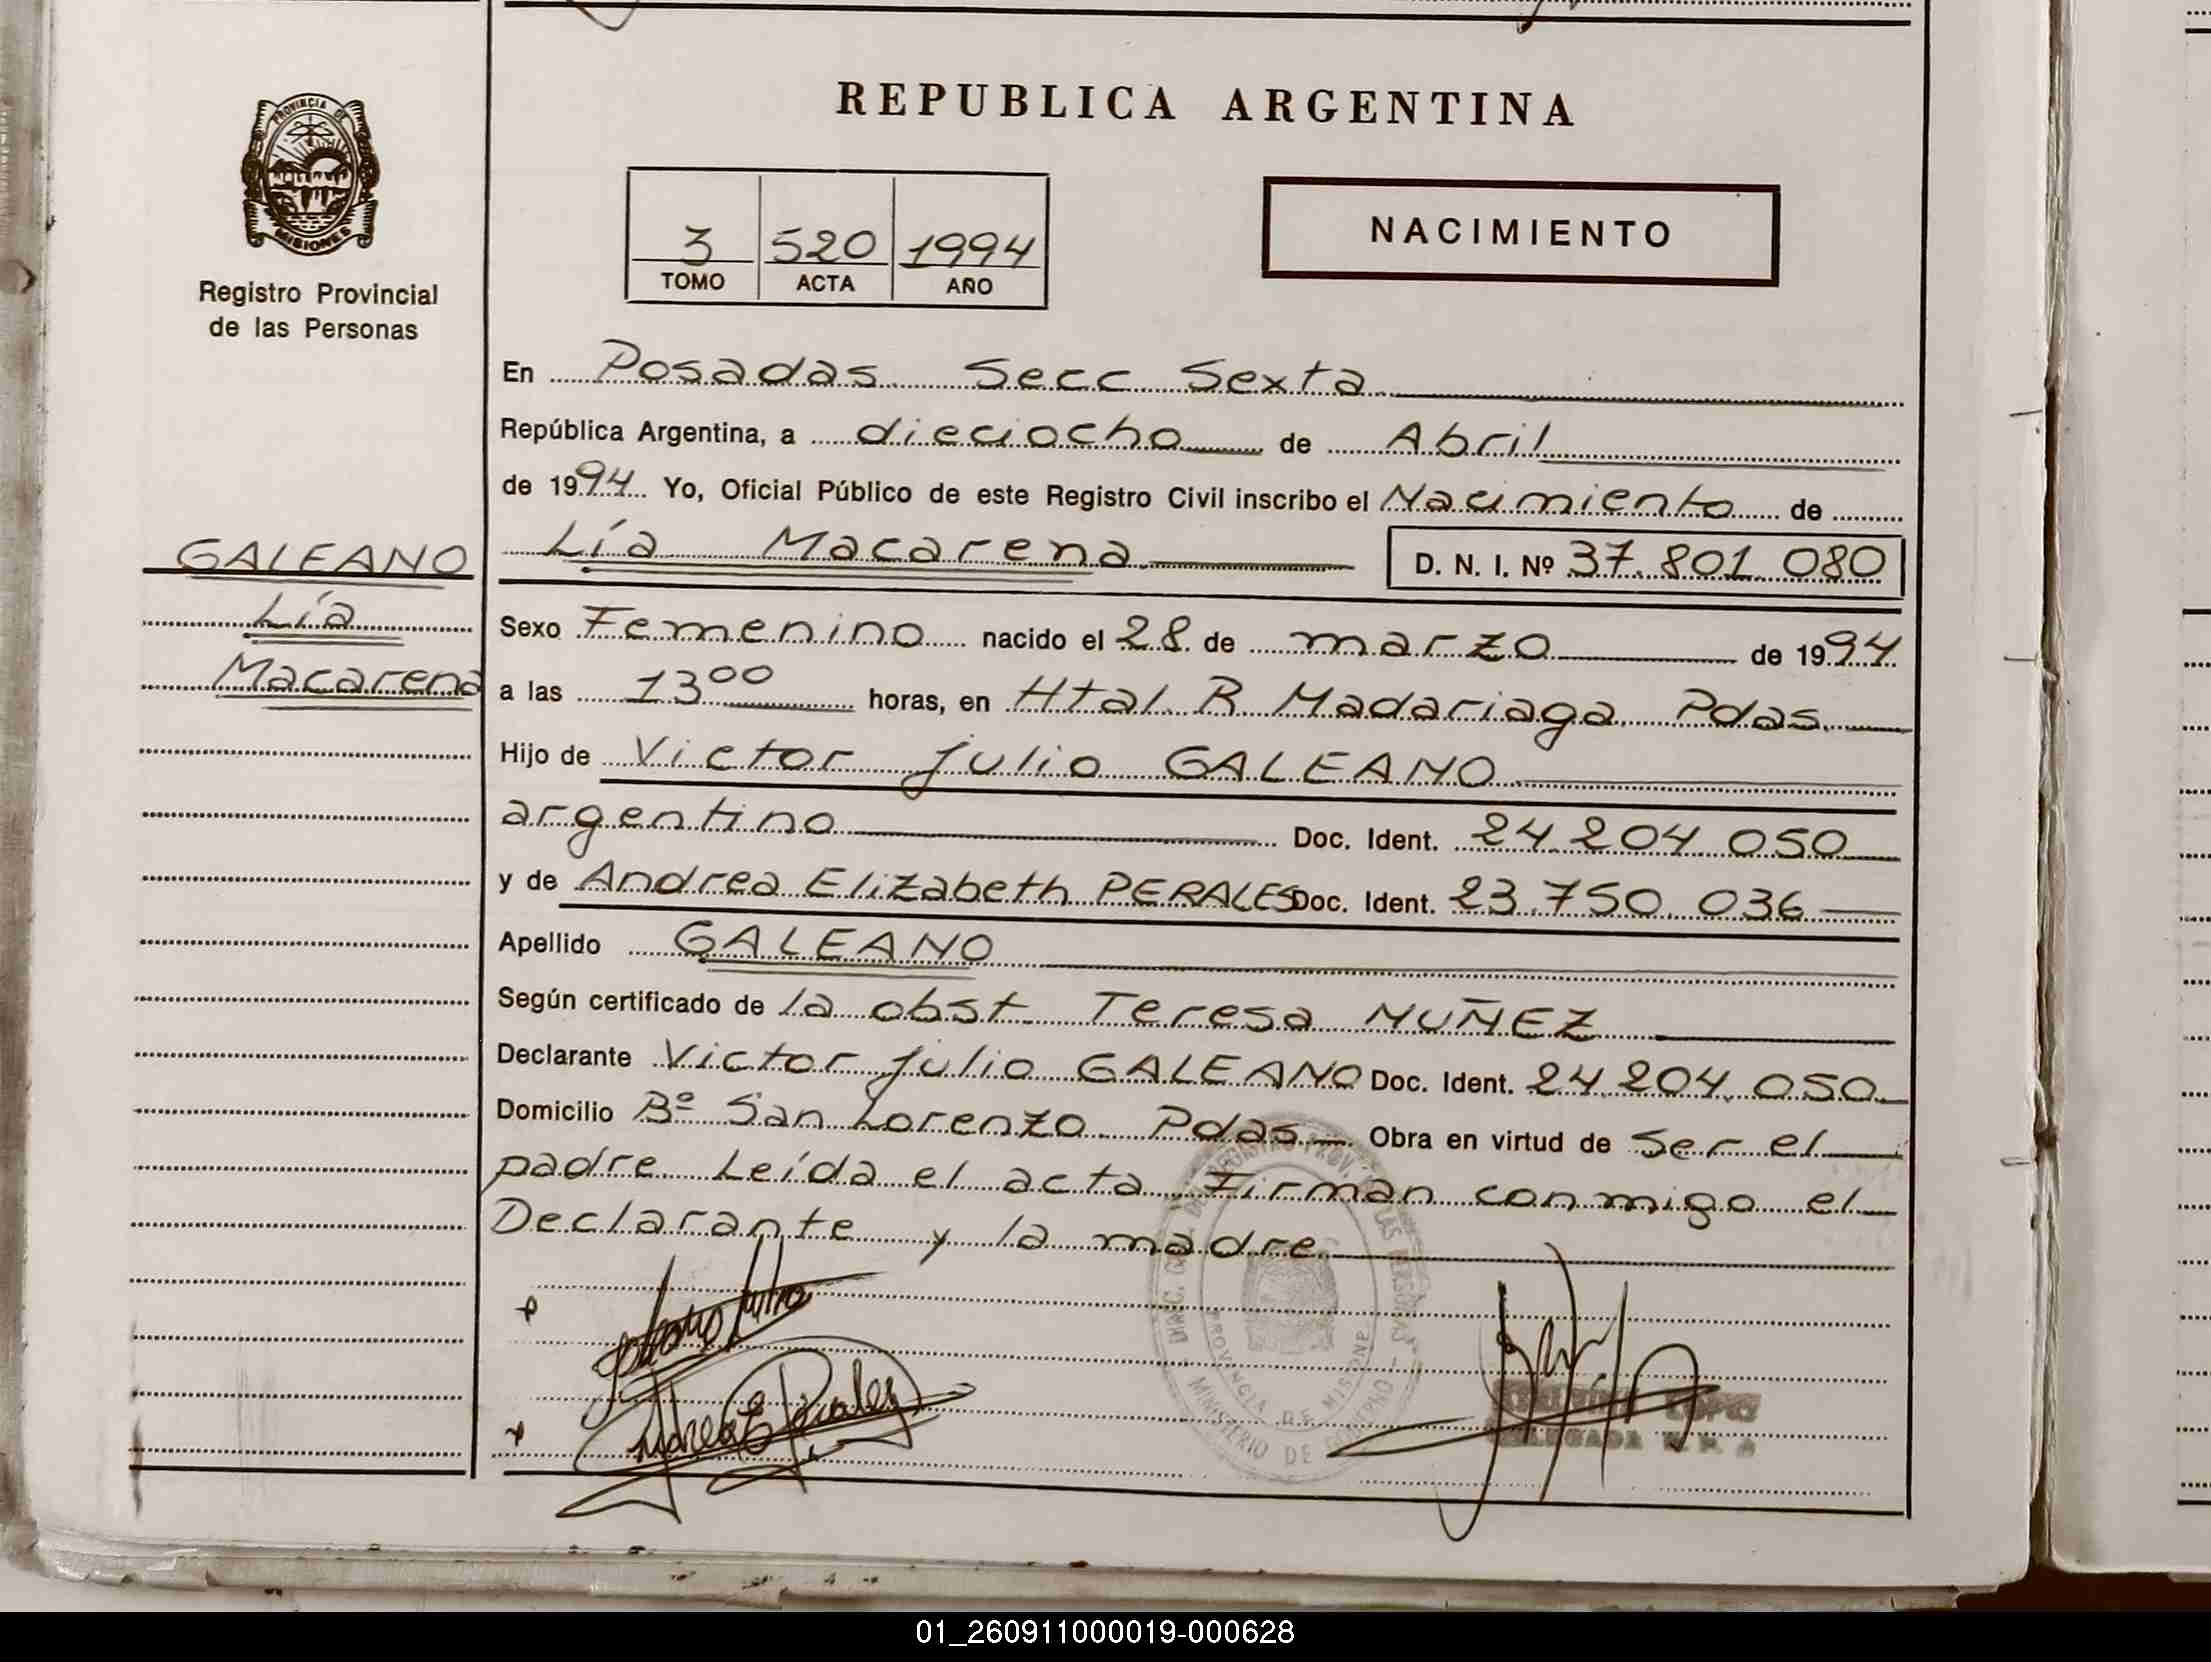 REPUBLICA ARGENTINA
PROVINCIA DE
MISIONES
Registro Provincial
de las Personas
3 520 1994
TOMO ACTA AÑO
NACIMIENTO
En Posadas Secc Sexta
República Argentina, a dieciocho de Abril
de 1994 Yo, Oficial Público de este Registro Civil inscribo el Nacimiento de
Lía Macarena D. N. I. Nº 37.801.080
GALEANO
Lía
Macarena
Sexo Femenino nacido el 28 de marzo de 1994
a las 13 00 horas, en Htal R Madariaga Pdas
Hijo de Victor Julio GALEANO
argentino Doc. Ident. 24.204.050
y de Andrea Elizabeth PERALES Doc. Ident. 23.750.036
Apellido GALEANO
Según certificado de la obst Teresa NUÑEZ
Declarante Victor Julio GALEANO Doc. Ident. 24.204.050
Domicilio Bº San Lorenzo Pdas Obra en virtud de ser el
padre Leída el acta Firman conmigo el
Declarante y la madre
PROVINCIA DE MISIONES
MINISTERIO DE GOBIERNO
LOPEZ
01_260911000019-000628